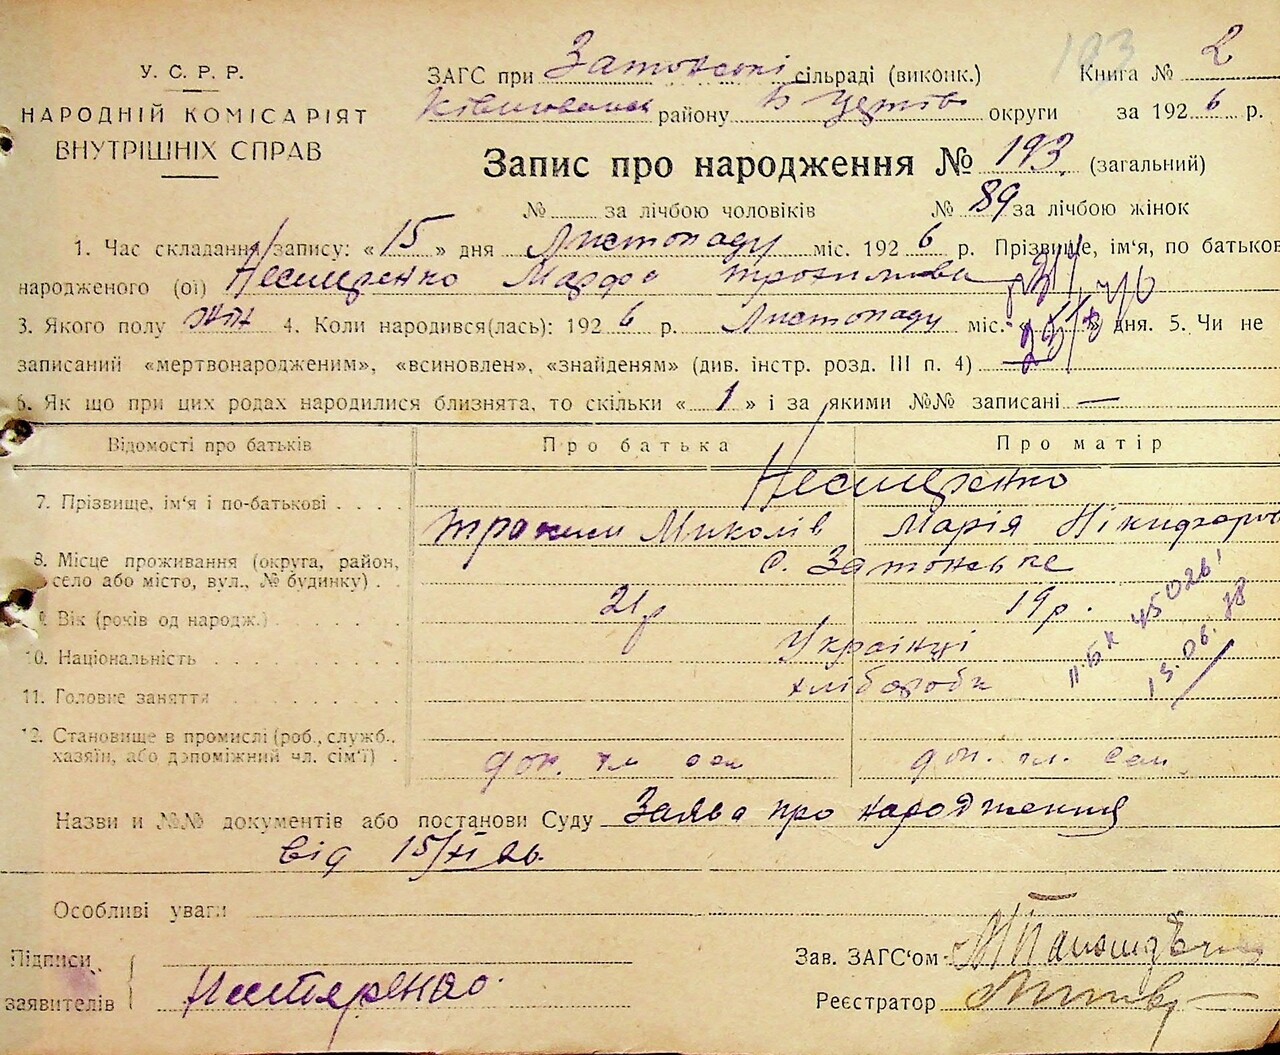 У. С. Р. Р.
НАРОДНІЙ КОМІСАРІЯТ
ВНУТРІШНІХ СПРАВ
193
ЗАГС при Затонські сільраді (виконк.) Книга № 2
району округи за 1926 р.
Запис про народження № 193 (загальний)
№ за лічбою чоловіків № 89 за лічбою жінок
1. Час складання запису: «15» дня Листопаду міс. 1926 р. Прізвище, ім'я, по батькові
народженого (ої) Нестеренко Марфа Трохимова
3. Якого полу жін 4. Коли народився(лась): 1926 р. Листопаду міс. дня. 5. Чи не
записаний «мертвонародженим», «всиновлен», «знайденям» (див. інстр. розд. III п. 4)
6. Як що при цих родах народилися близнята, то скільки «1» і за якими №№ записані —
Відомості про батьків Про батька Про матір
7. Прізвище, ім'я і по-батькові Нестеренко
Трохим Миколів Марія Нікифоров
8. Місце проживання (округа, район, село або місто, вул., № будинку) с. Затонське
9. Вік (років од народж.) 21 р 19 р.
10. Національність Українці
11. Головне заняття хлібороби
12. Становище в промислі (роб., служб., хазяїн, або допоміжний чл. сім'ї) доп. чл. сем доп. чл. сем.
Назви и №№ документів або постанови Суду Заява про народження
від 15/XI 26.
Особливі уваги
Підписи
заявителів Нестеренко.
Зав. ЗАГС'ом
Реєстратор